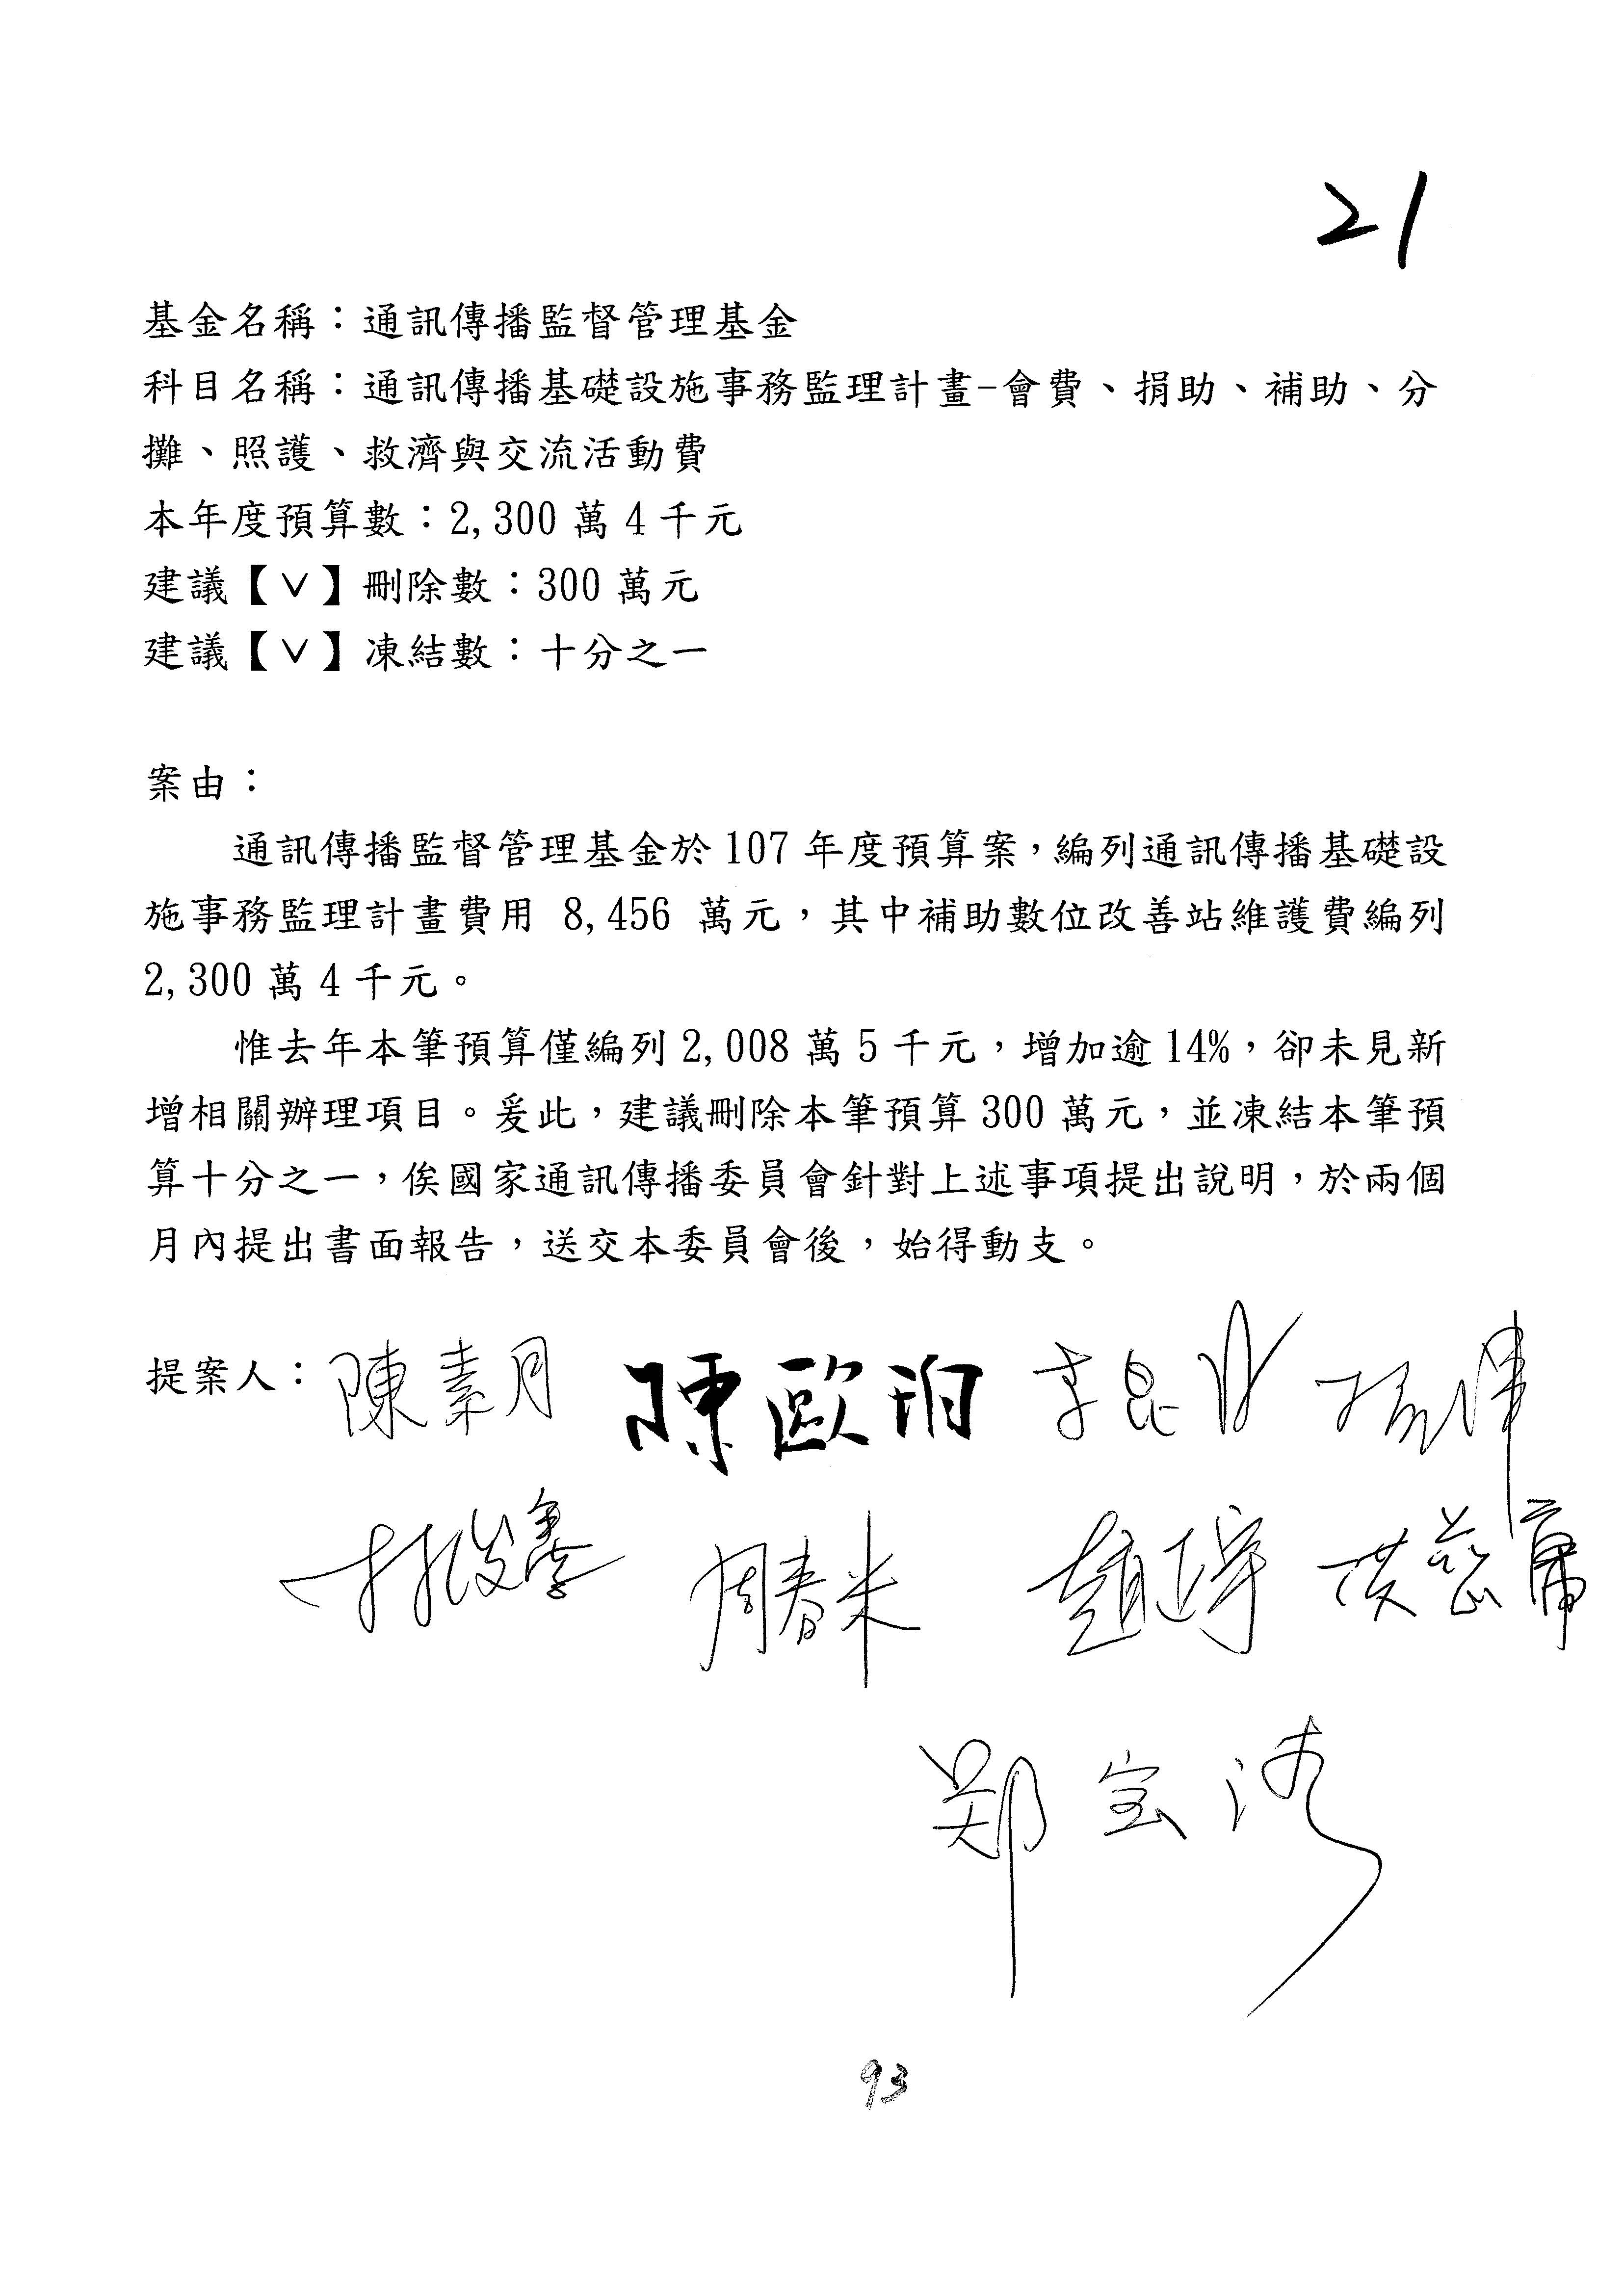 21
基金名稱：通訊傳播監督管理基金
科目名稱：通訊傳播基礎設施事務監理計畫-會費、捐助、補助、分
攤、照護、救濟與交流活動費
本年度預算數：2,300 萬 4 千元
建議【∨】刪除數：300 萬元
建議【∨】凍結數：十分之一
案由：
通訊傳播監督管理基金於 107 年度預算案，編列通訊傳播基礎設
施事務監理計畫費用 8,456 萬元，其中補助數位改善站維護費編列
2,300 萬 4 千元。
惟去年本筆預算僅編列 2,008 萬 5 千元，增加逾 14%，卻未見新
增相關辦理項目。爰此，建議刪除本筆預算 300 萬元，並凍結本筆預
算十分之一，俟國家通訊傳播委員會針對上述事項提出說明，於兩個
月內提出書面報告，送交本委員會後，始得動支。
提案人：陳素月 陳歐珀 李昆
周春米
鄭宝清
93